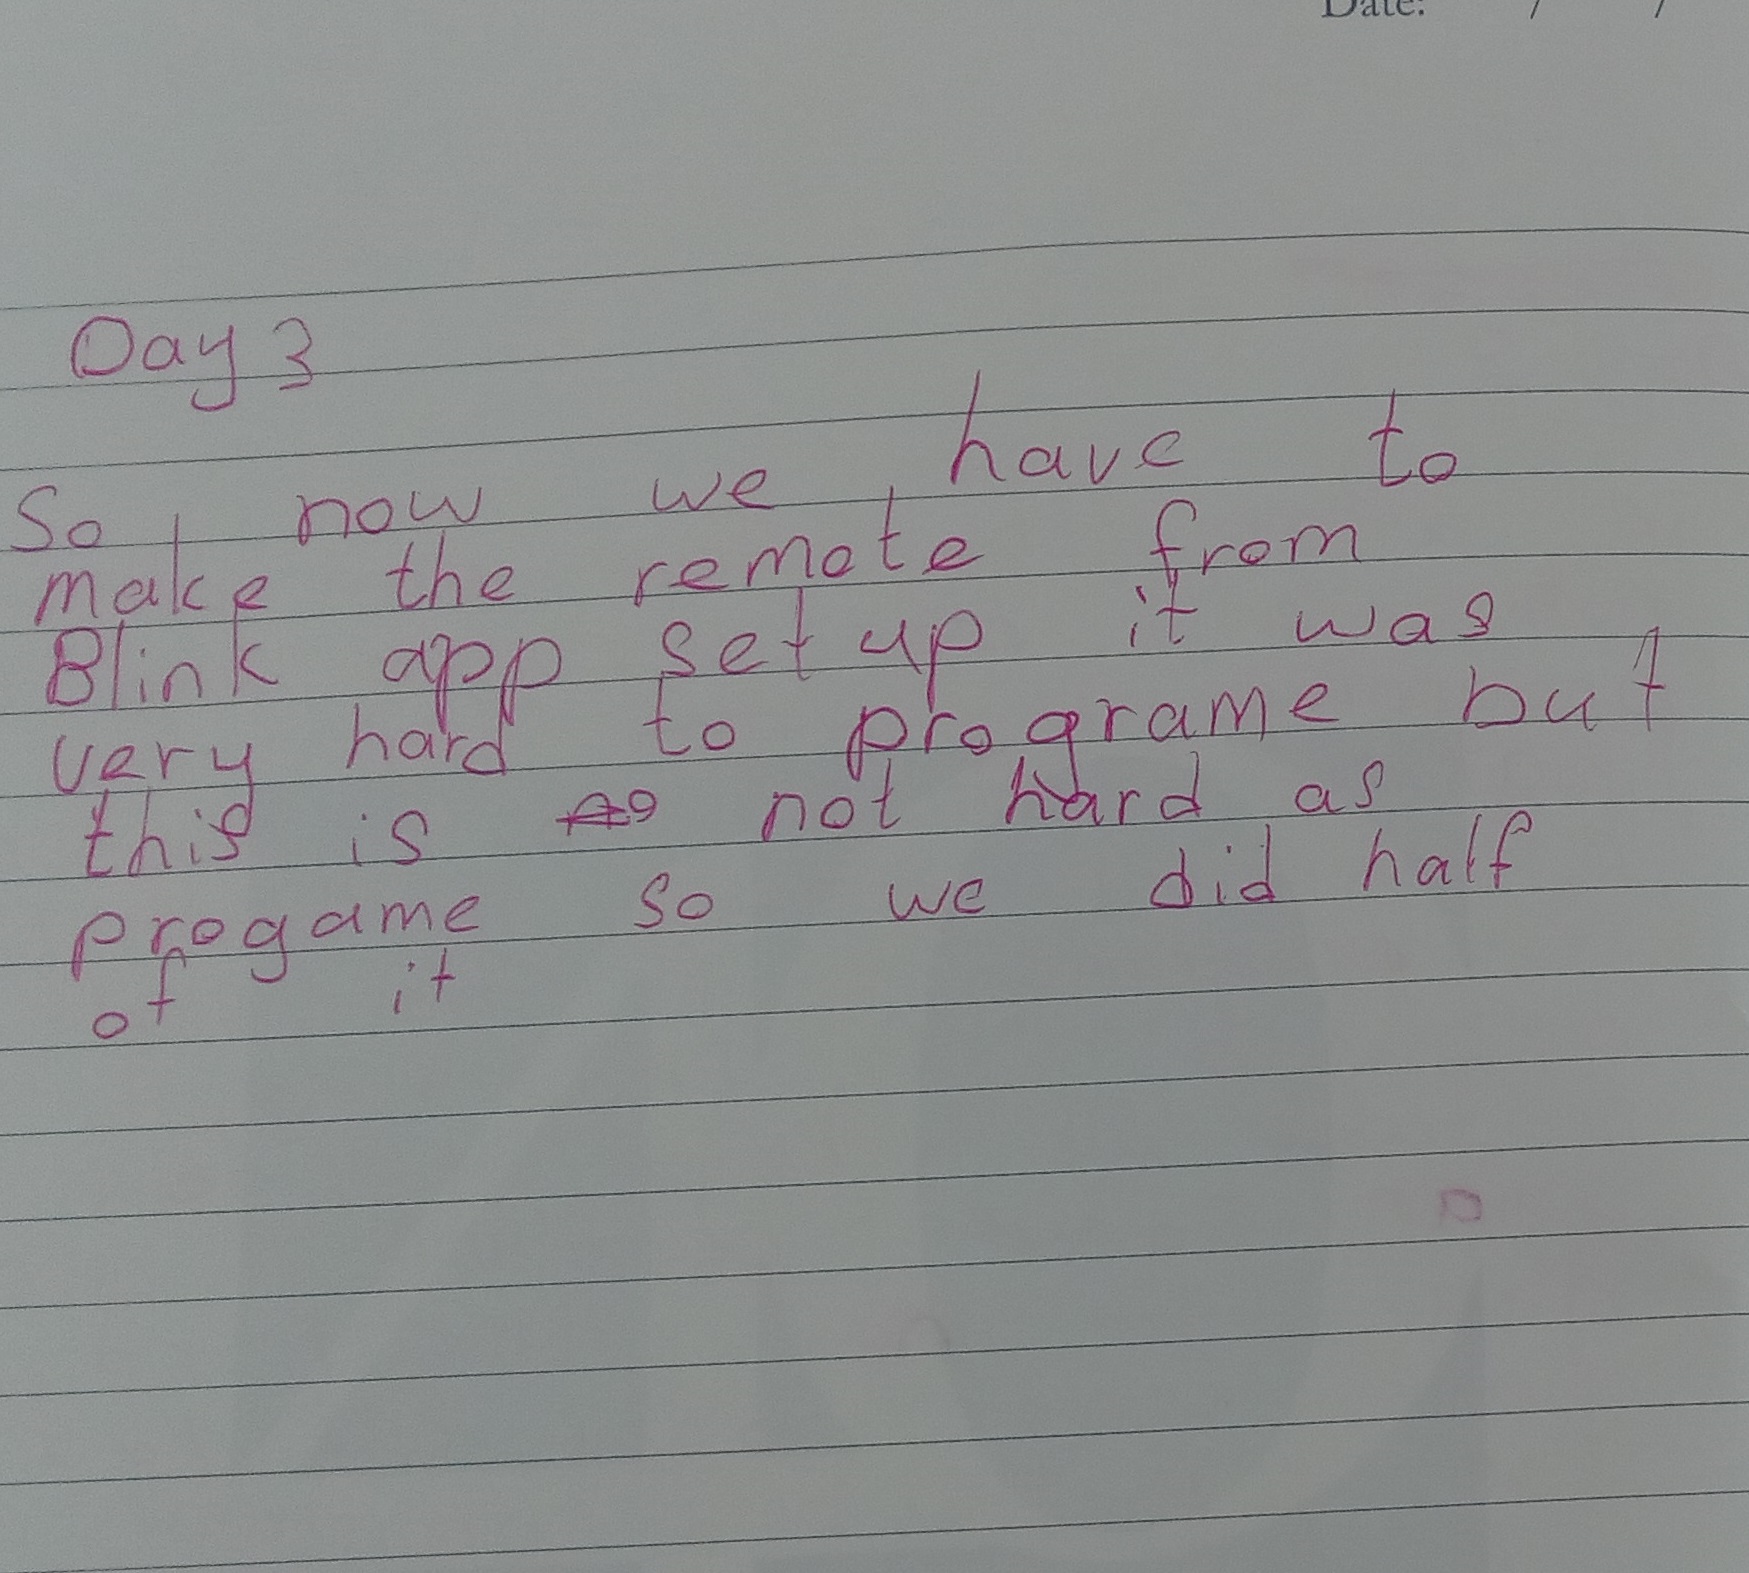 Date: / /
Day 3
So, now we have to
make the remote from
Blink app set up it was
very hard to programe but
this is not hard as
progame so we did half
of it